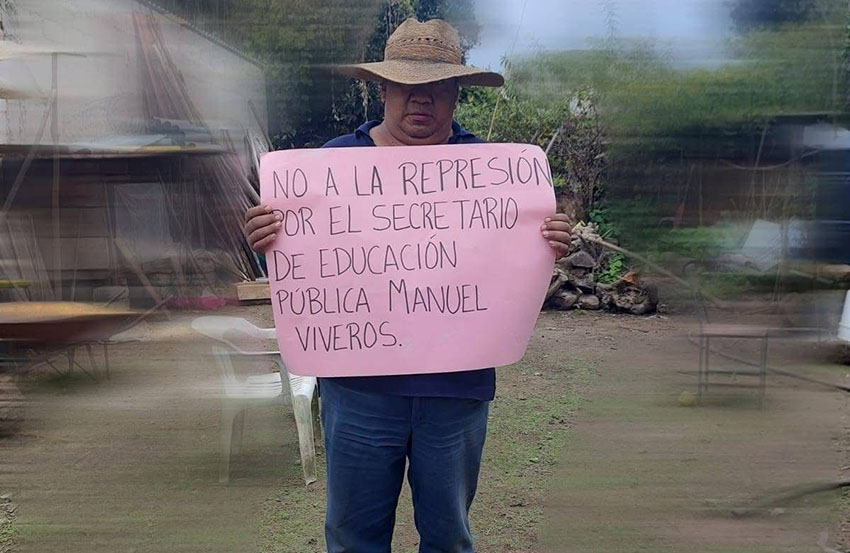 NO A LA REPRESIÓN
POR EL SECRETARIO
DE EDUCACIÓN
PÚBLICA MANUEL
VIVEROS.